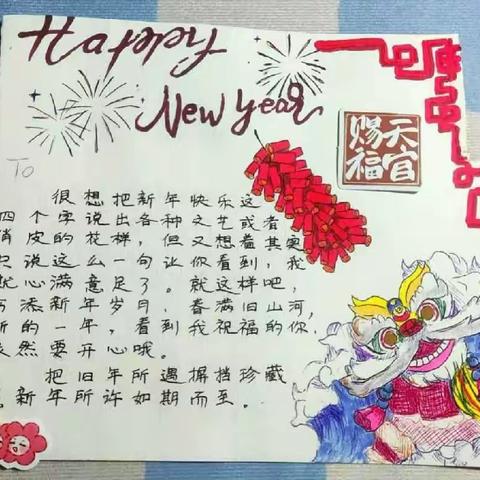 Happy
New Year
天官
赐福
To
很想把新年快乐这
四个字说出各种文艺或者
俏皮的花样，但又想着其实
只说这么一句让你看到，我
就心满意足了。就这样吧，
历添新年岁月，春满旧山河，
新的一年，看到我祝福的你，
依然要开心哦。
把旧年所遇摒挡珍藏
新年所许如期而至。